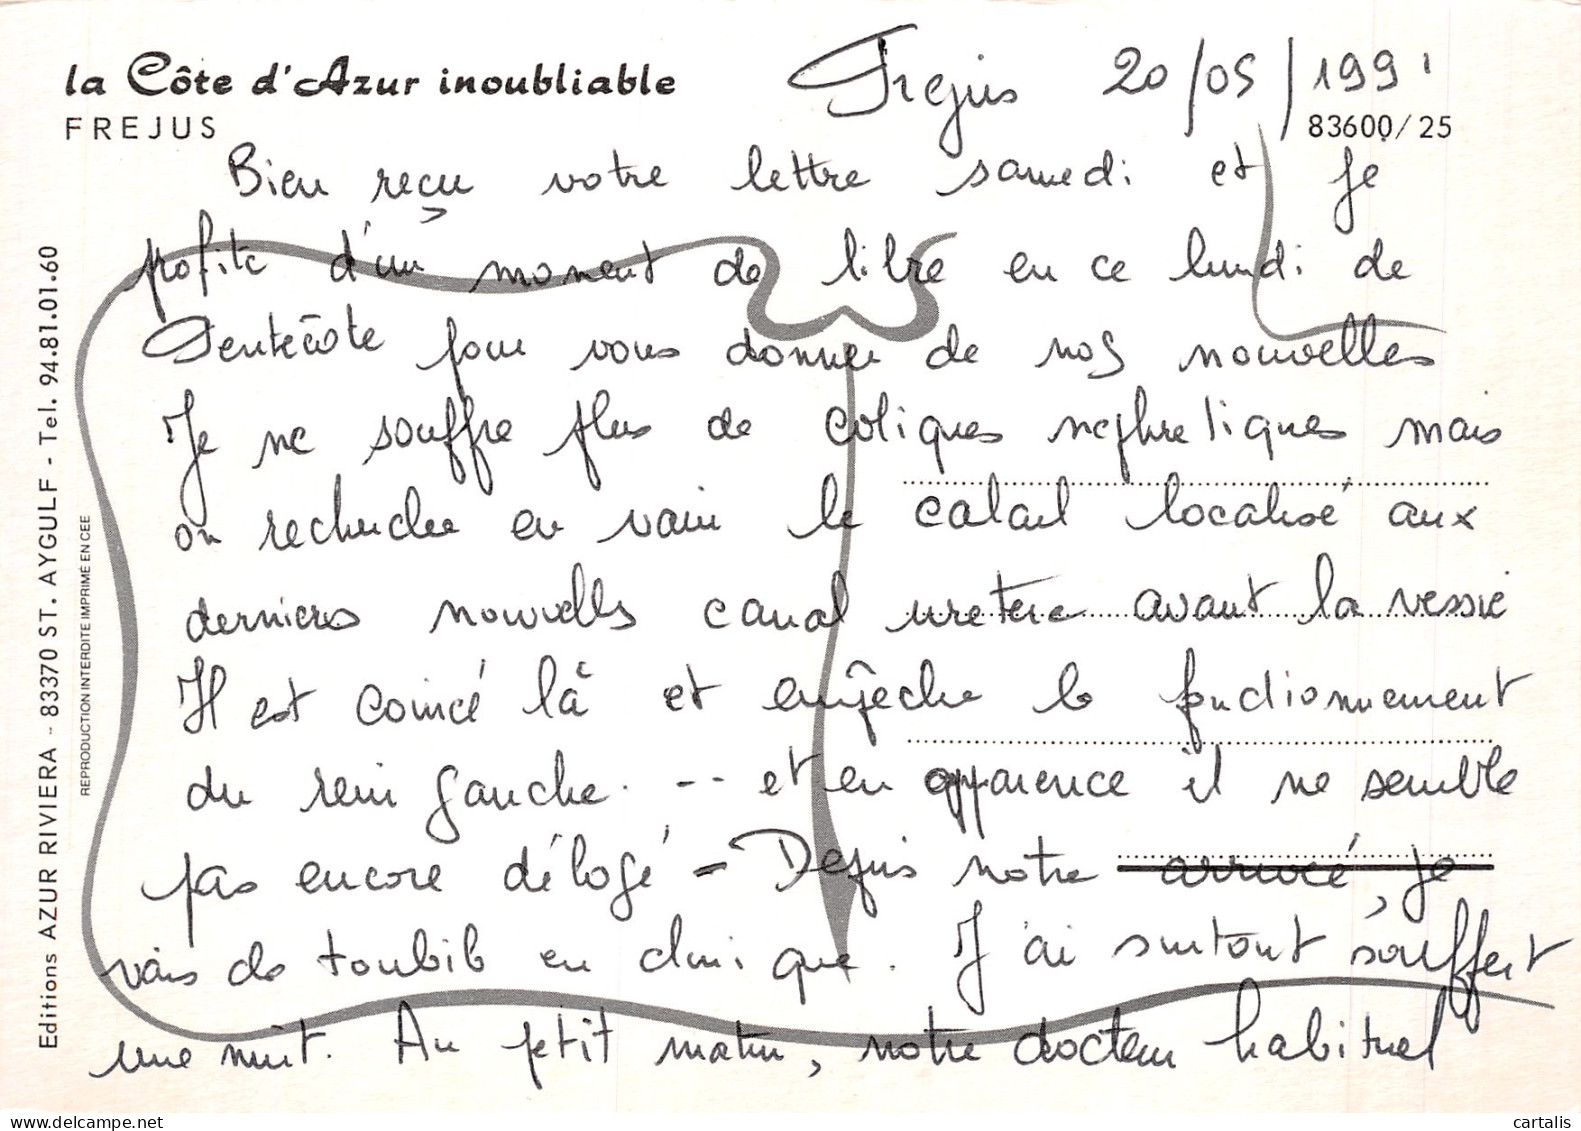 la Côte d'Azur inoubliable
FREJUS
Frejus 20/05/1991
83600/25
Bien reçu votre lettre samedi et je
profite d'un moment de libre en ce lundi de
Pentecôte pour vous donner de nos nouvelles
Je ne souffre plus de coliques nephretiques mais
on recherche en vain le calcul localisé aux
dernieres nouvelles canal uretere avant la vessie
Il est coincé là et empêche le fonctionnement
du rein gauche. -- et en apparence il ne semble
pas encore délogé - Depuis notre arrivée, je
vais de toubib en clinique. J'ai surtout souffert
une nuit. Au petit matin, notre docteur habituel
Editions AZUR RIVIERA - 83370 ST. AYGULF - Tel. 94.81.01.60
REPRODUCTION INTERDITE IMPRIMÉ EN CEE
delcampe.net
cartalis